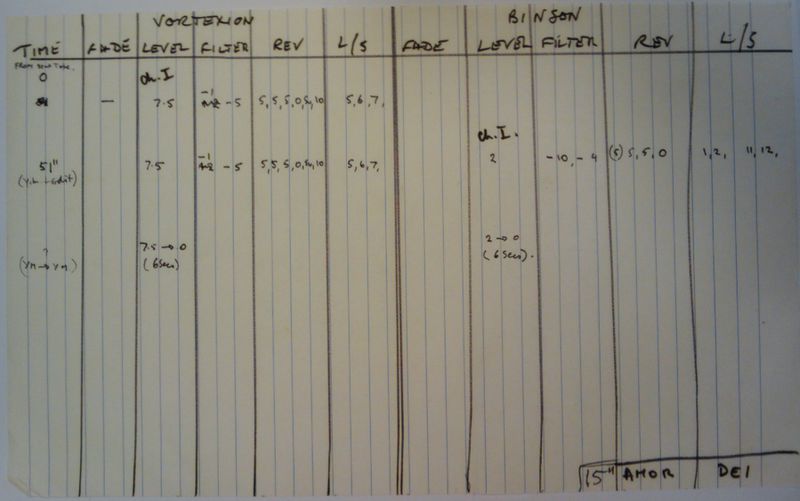 VORTEXION BINSON
TIME FADE LEVEL FILTER REV L/S FADE LEVEL FILTER REV L/S
0 ch.I
— 7.5 -1 -5 5, 5, 5, 0, 10 5, 6, 7,
ch.I.
51" 7.5 -1 -5 5, 5, 5, 0, 10 5, 6, 7, 2 -10, -4 (5) 5, 5, 0 1, 2, 11, 12,
? 7.5 → 0 2 → 0
(6 secs) (6 secs).
15" AMOR DEI